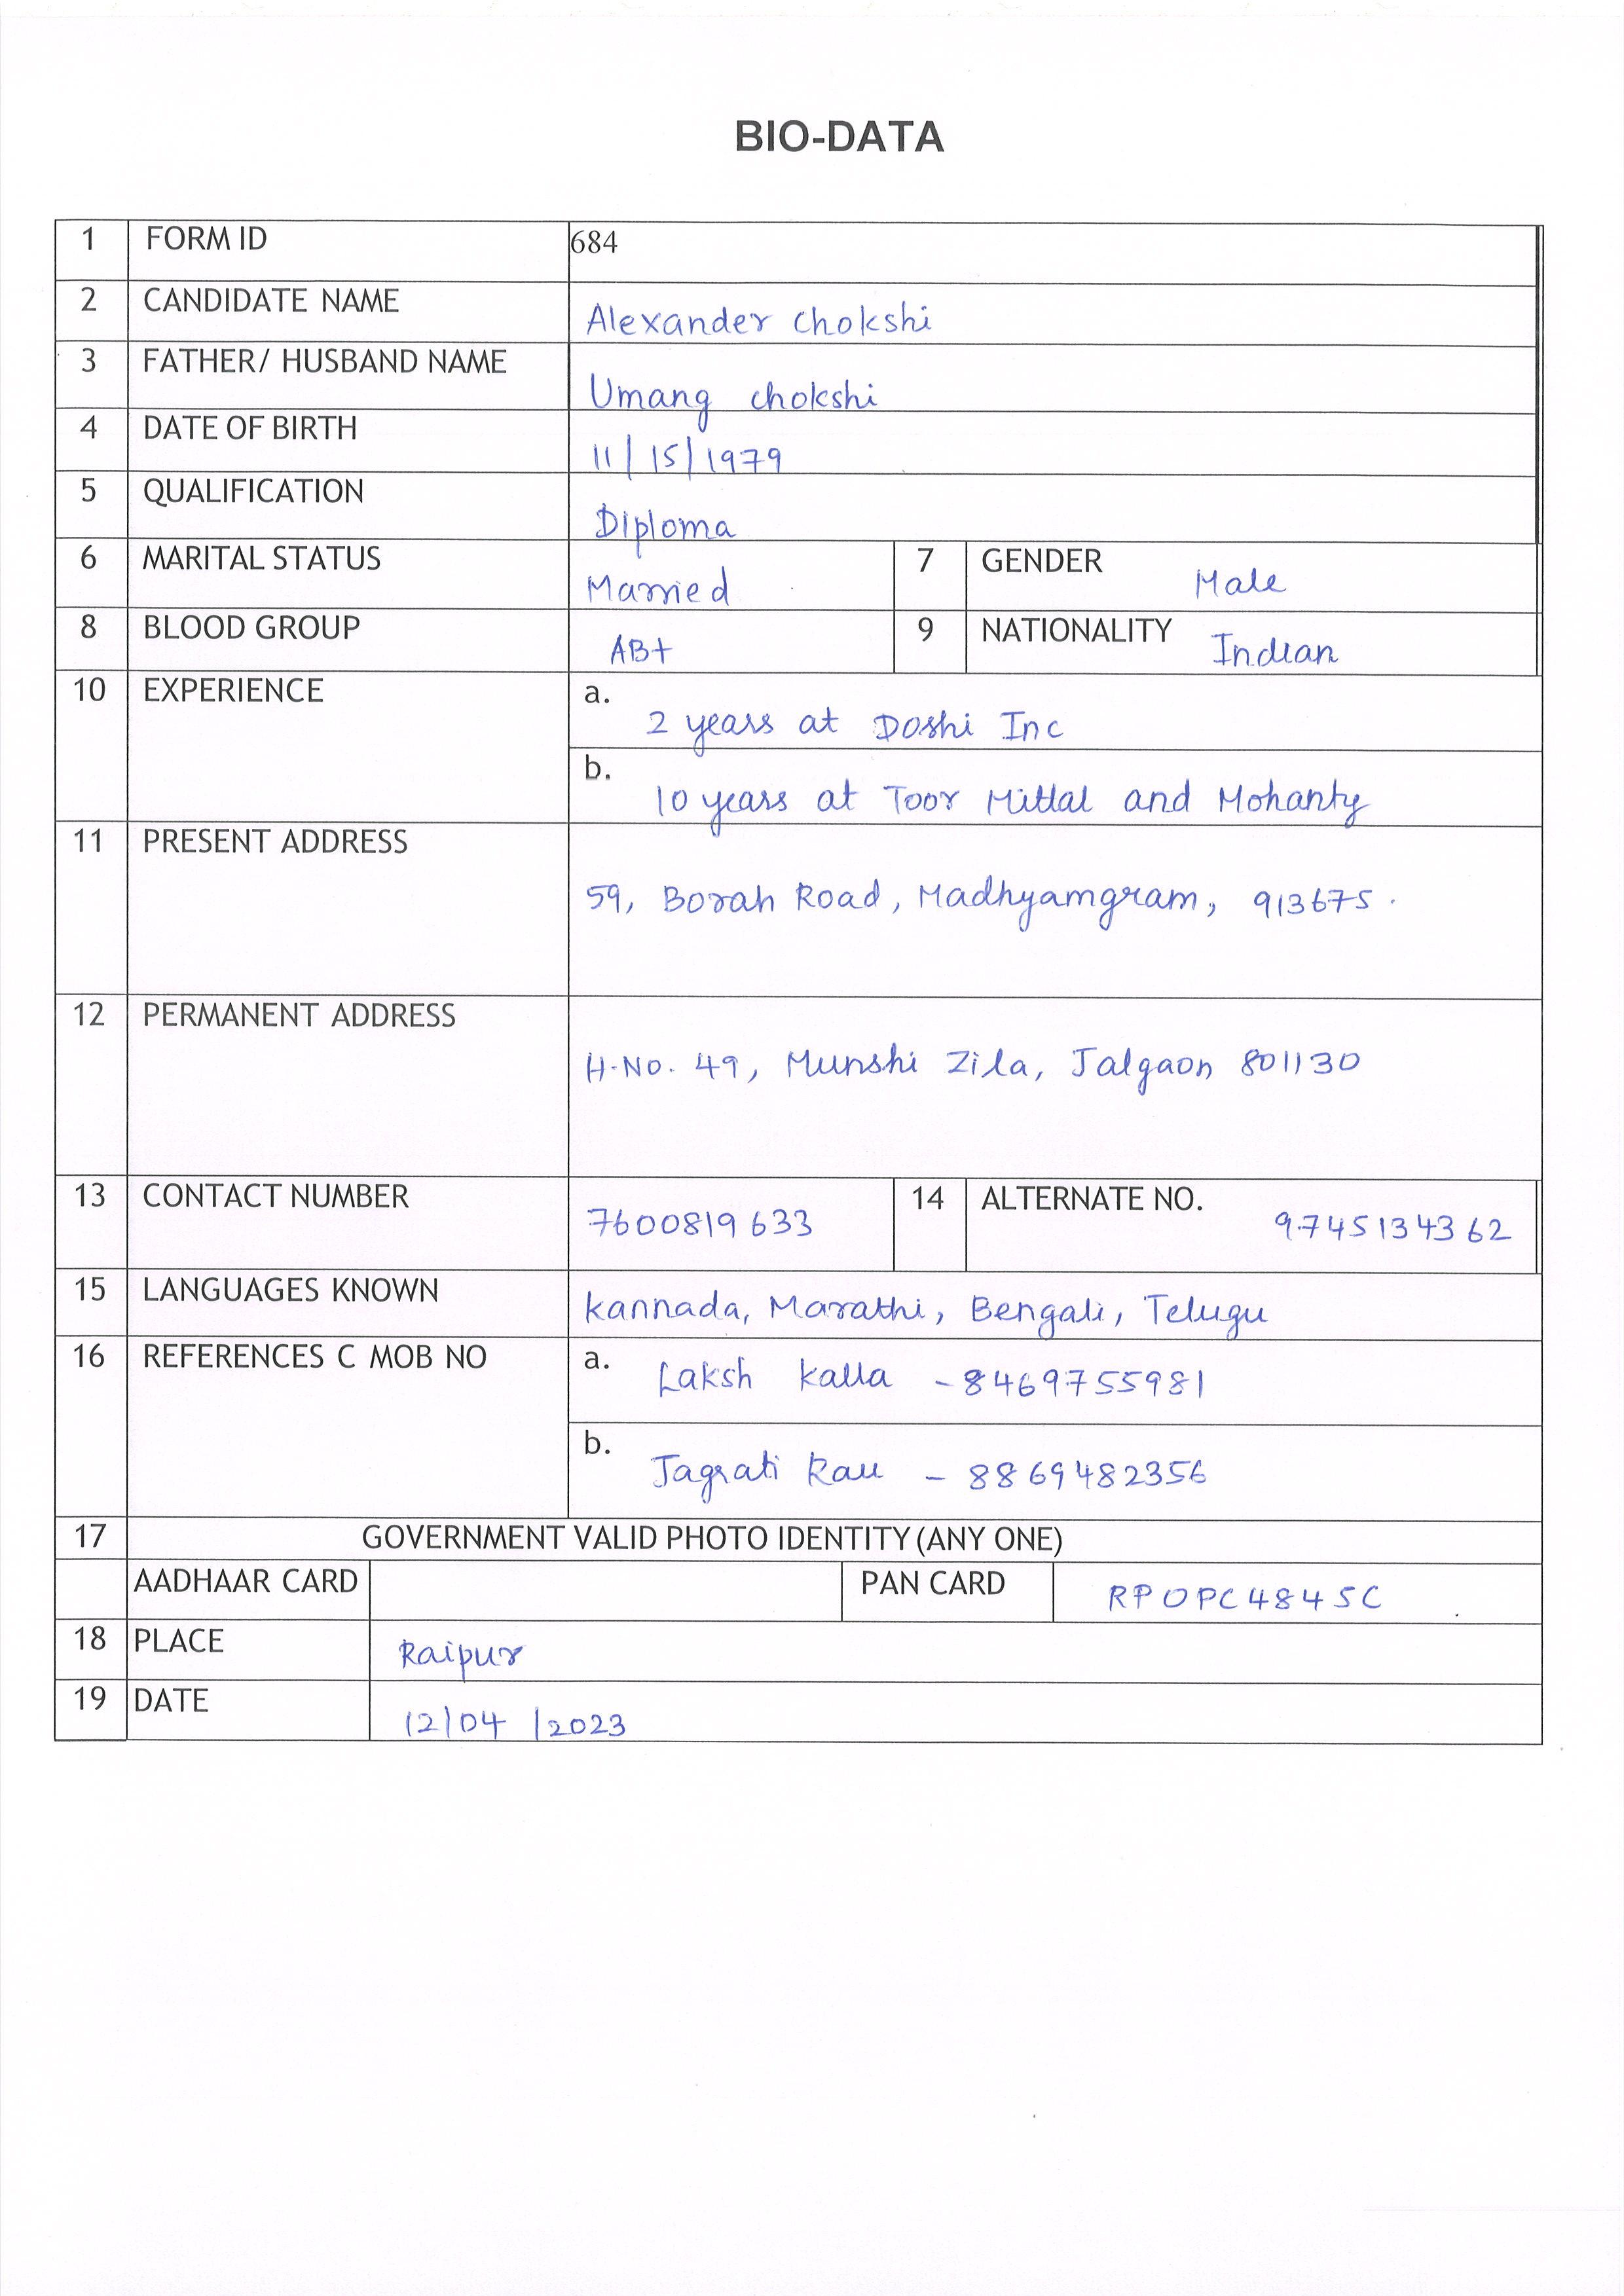 BIO-DATA
1 FORM ID 684
2 CANDIDATE NAME Alexander Chokshi
3 FATHER/ HUSBAND NAME Umang chokshi
4 DATE OF BIRTH 11/15/1979
5 QUALIFICATION Diploma
6 MARITAL STATUS Married 7 GENDER Male
8 BLOOD GROUP AB+ 9 NATIONALITY Indian
10 EXPERIENCE a. 2 years at Doshi Inc
b. 10 years at Toor Mittal and Mohanty
11 PRESENT ADDRESS
59, Borah Road, Madhyamgram, 913675.
12 PERMANENT ADDRESS
H.No. 49, Munshi Zila, Jalgaon 801130
13 CONTACT NUMBER 7600819633 14 ALTERNATE NO. 9745134362
15 LANGUAGES KNOWN kannada, Marathi, Bengali, Telugu
16 REFERENCES C MOB NO a. Laksh kalla - 8469755981
b. Jagrati Rau - 8869482356
17 GOVERNMENT VALID PHOTO IDENTITY (ANY ONE)
AADHAAR CARD PAN CARD RPOPC4845C
18 PLACE Raipur
19 DATE 12/04/2023